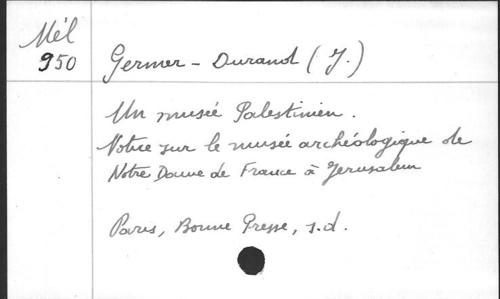 Mél
950
Germer-Durand (J.)
Un musée Palestinien.
Notice sur le musée archéologique de
Notre Dame de France à Jerusalem
Paris, Bonne Presse, s.d.